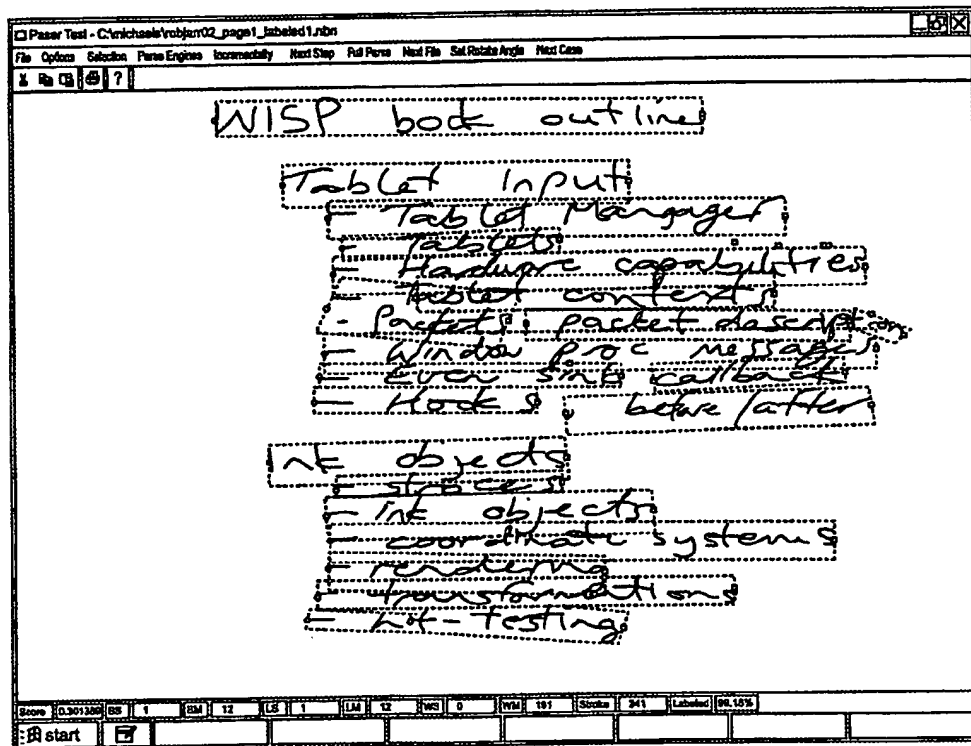 Paser Test - C:\michaels\robjarr02_page1_labeled1.nbn
File Options Selection Parse Engines Incrementally Next Step Full Parse Next File Set Rotate Angle Next Case
?
WISP book outline
Tablet Input
- Tablet Mangager
- Tablets
- Hardware capabilities
- Tablet contexts
- Packets packet description
- Window proc messages
- Even sink callback
- Hooks before/after
Ink objects
- strokes
- ink objects
- coordinate systems
- rendering
- transformations
- hit-testing
Score 0.301389 BS 1 BM 12 LS 1 LM 12 WS 0 WM 191 Stroke 341 Labeled 99.18%
start